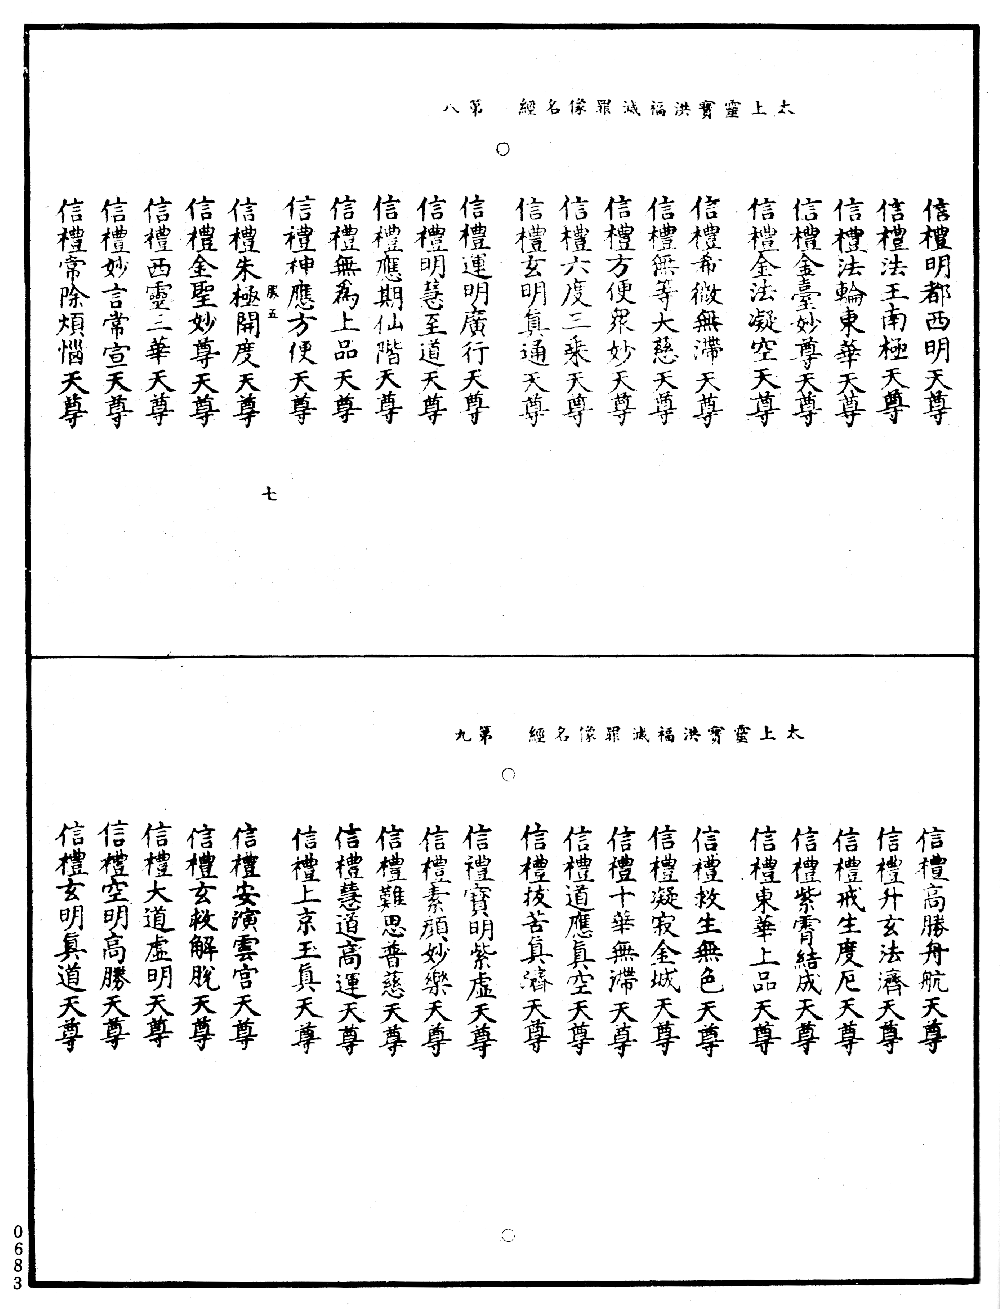 太上靈寶洪福滅罪像名經　第八
信禮明都西明天尊
信禮法王南極天尊
信禮法輪東華天尊
信禮金臺妙尊天尊
信禮金法凝空天尊
信禮希微無滯天尊
信禮無等大慈天尊
信禮方便衆妙天尊
信禮六度三乘天尊
信禮玄明真通天尊
信禮運明廣行天尊
信禮明慧至道天尊
信禮應期仙階天尊
信禮無為上品天尊
信禮神應方便天尊
五
七
信禮朱極開度天尊
信禮金聖妙尊天尊
信禮西靈三華天尊
信禮妙言常宣天尊
信禮常除煩惱天尊
太上靈寶洪福滅罪像名經　第九
信禮高勝舟航天尊
信禮升玄法濟天尊
信禮戒生度厄天尊
信禮紫霄結成天尊
信禮東華上品天尊
信禮救生無色天尊
信禮凝寂金城天尊
信禮十華無滯天尊
信禮道應真空天尊
信禮拔苦真濟天尊
信禮寶明紫虛天尊
信禮素顏妙樂天尊
信禮難思普慈天尊
信禮慧道高運天尊
信禮上京玉真天尊
信禮安演雲宮天尊
信禮玄救解脫天尊
信禮大道虛明天尊
信禮空明高勝天尊
信禮玄明真道天尊
0683